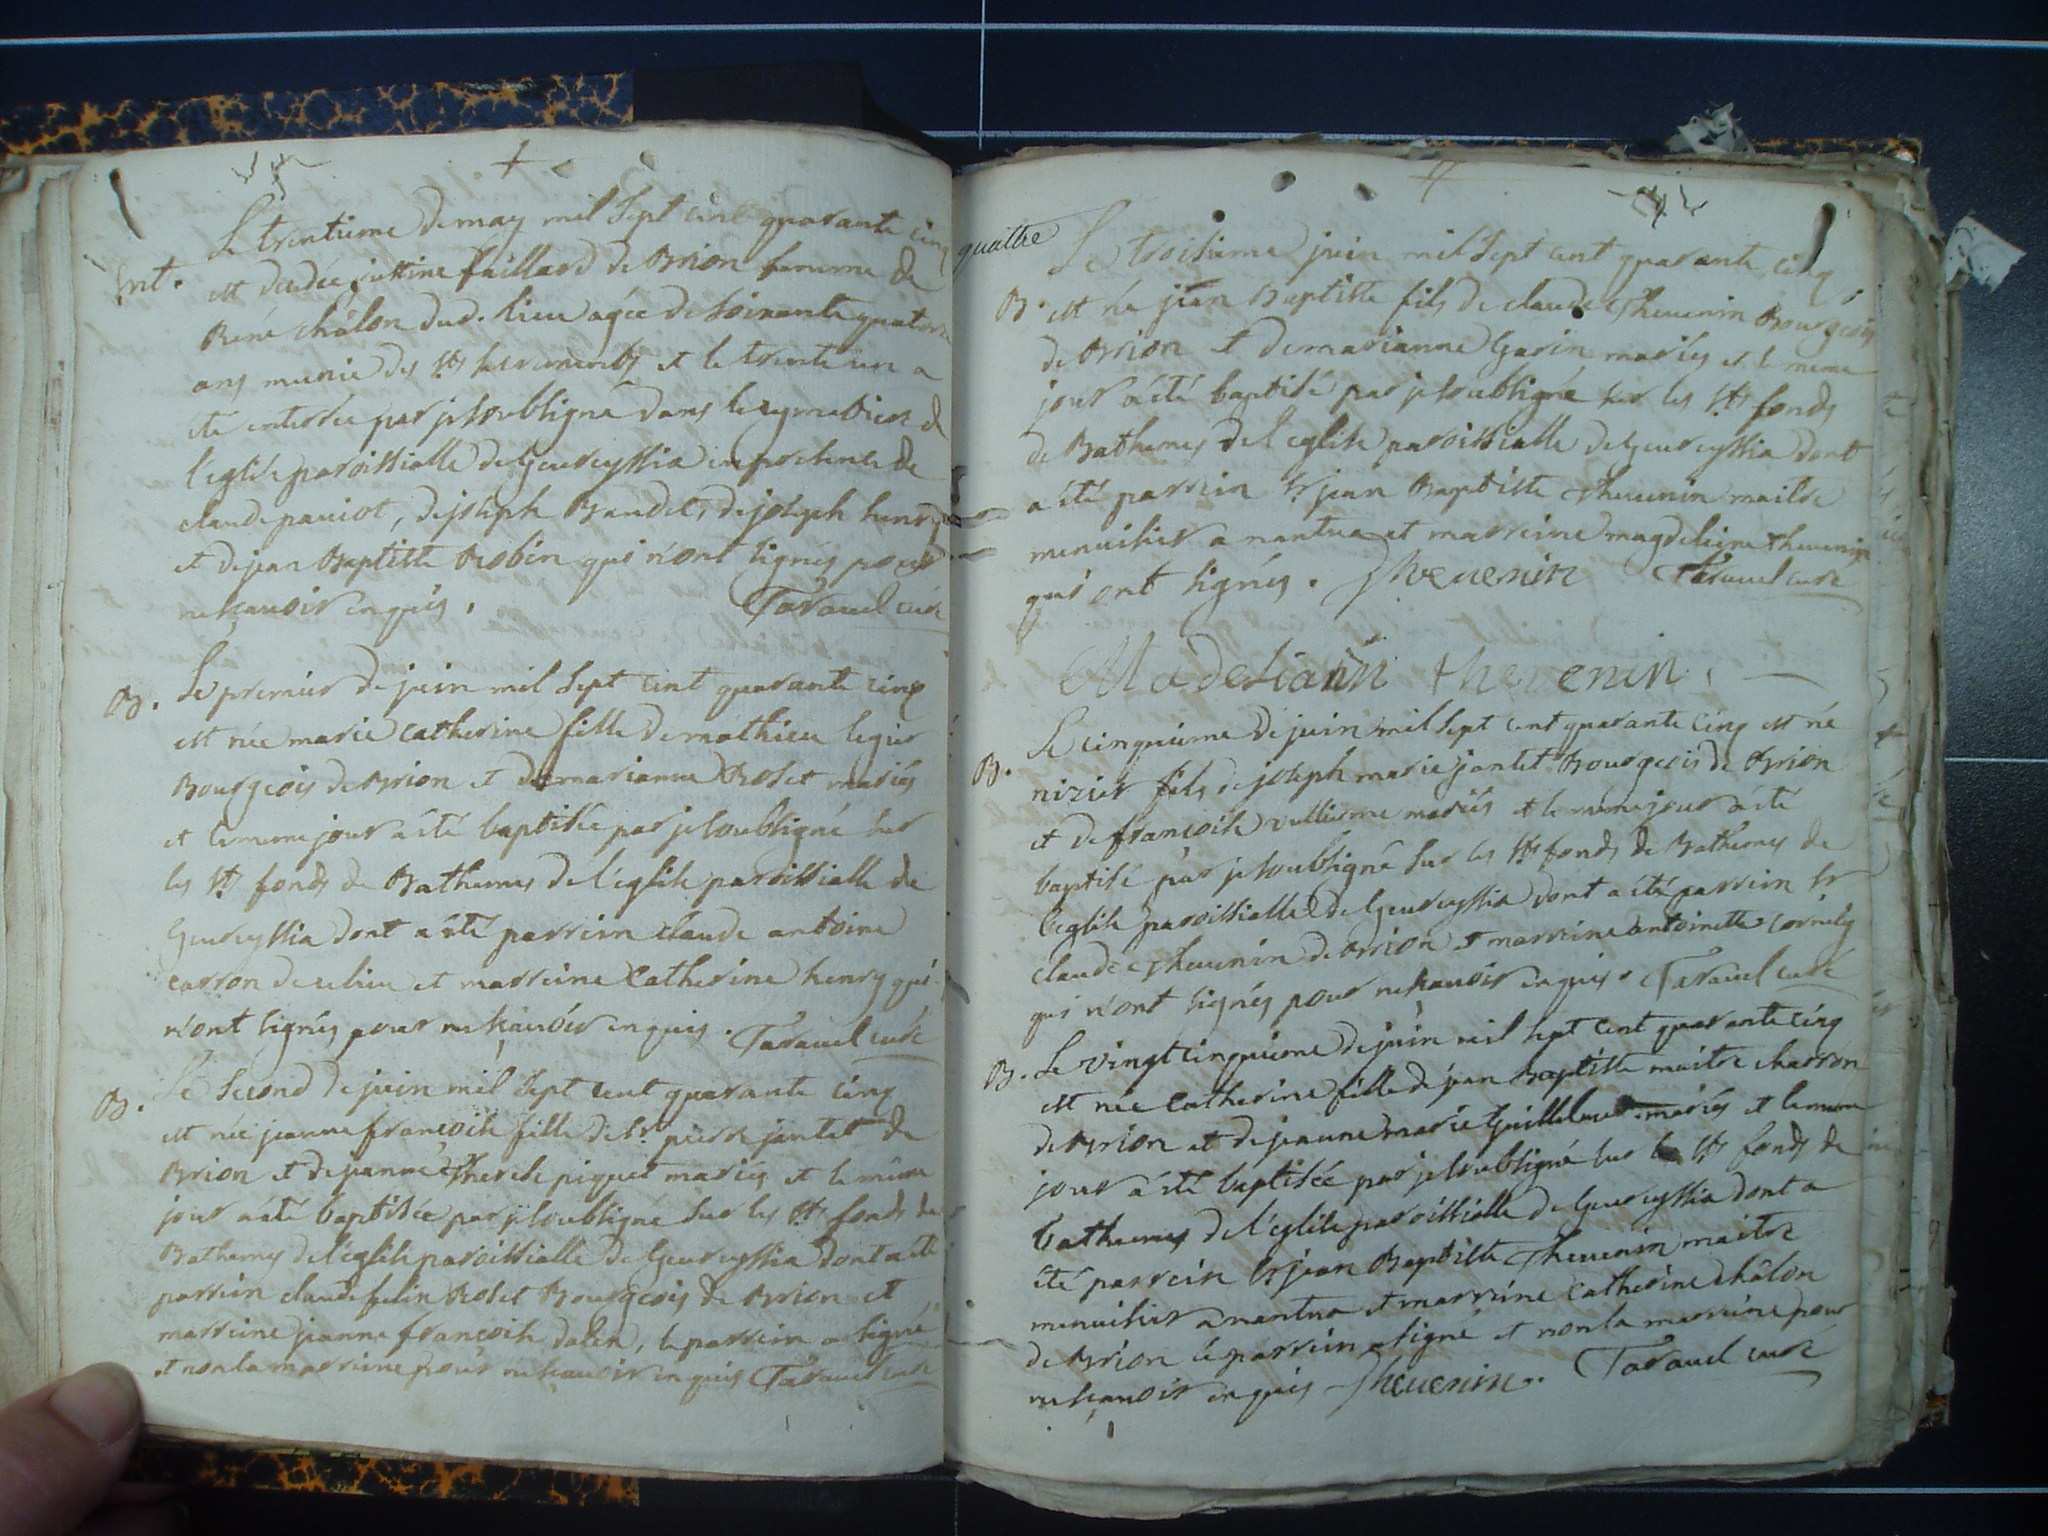 Le trentieme de may mil sept cent quarante cinq
Ent. est decedée justine faillard de Brion femme de
René châlon dud. lieu agée de soixante quatorze
ans munie des sts sacrements et le trente un a
été enterrée par je soubsigné dans le cymetiere de
l'eglise paroissialle de Geureyssia en presence de
claude paniot, de joseph Baudet, de joseph henry
et de jean Baptiste Robin qui n'ont signés pour
ne scavoir enquis. Taravel curé
B. Le premier de juin mil sept cent quarante cinq
est née marie catherine fille de mathieu legier
Bourgeois de Brion et de marianne Rolet mariés
et le meme jour a été baptisée par je soubsigné sur
les sts fonds de Bathemes de l'eglise paroissialle de
Geureyssia dont a été parrein claude antoine
carron de ce lieu et marreine catherine henry qui
n'ont signés pour ne scavoir enquis. Taravel curé
B. Le second de juin mil sept cent quarante cinq
est née jeanne françoise fille de sr. pierre jantet de
Brion et de jeanne Therese piquet mariés et le même
jour a été baptisée par je soubsigné sur les sts fonds de
Bathemes de l'eglise paroissialle de Geureyssia dont a été
parrein claude Rolet Bourgeois de Brion et
marreine jeanne françoise dalen, le parrein a signé
et non la marreine pour ne scavoir enquis Taravel curé
quattre
Le troisieme juin mil sept cent quarante cinq
B. est né jean Baptiste fils de claude Thevenin Bourgeois
de Brion et de marianne Garin mariés et le meme
jour a été baptisé par je soubsigné sur les sts fonds
de Bathemes de l'eglise paroissialle de Geureyssia dont
a été parrein sr jean Baptiste Thevenin maitre
menuisier a nantua et marreine magdeleine thevenin
qui ont signés. Thevenin Taravel curé
Madeliann thevenin.
B. Le cinquieme de juin mil sept cent quarante cinq est né
nizier fils de joseph marie jantet Bourgeois de Brion
et de françoise vullierme mariés et le même jour a été
baptisé par je soubsigné sur les sts fonds de Bathemes de
l'eglise paroissialle de Geureyssia dont a été parrein sr
claude Thevenin de Brion et marreine antoinette cornely
qui n'ont signés pour ne scavoir enquis. Taravel curé
B. Le vingt cinquieme de juin mil sept cent quarante cinq
est née catherine fille de jean Baptiste maitre charron
de Brion et de jeanne marie Guillelmet mariés et le meme
jour a été baptisée par je soubsigné sur les sts fonds de
bathemes de l'eglise paroissialle de Geureyssia dont a
été parrein sr jean Baptiste Thevenin maitre
menuisier a nantua et marreine catherine châlon
de Brion le parrein a signé et non la marreine pour
ne scavoir enquis Thevenin. Taravel curé